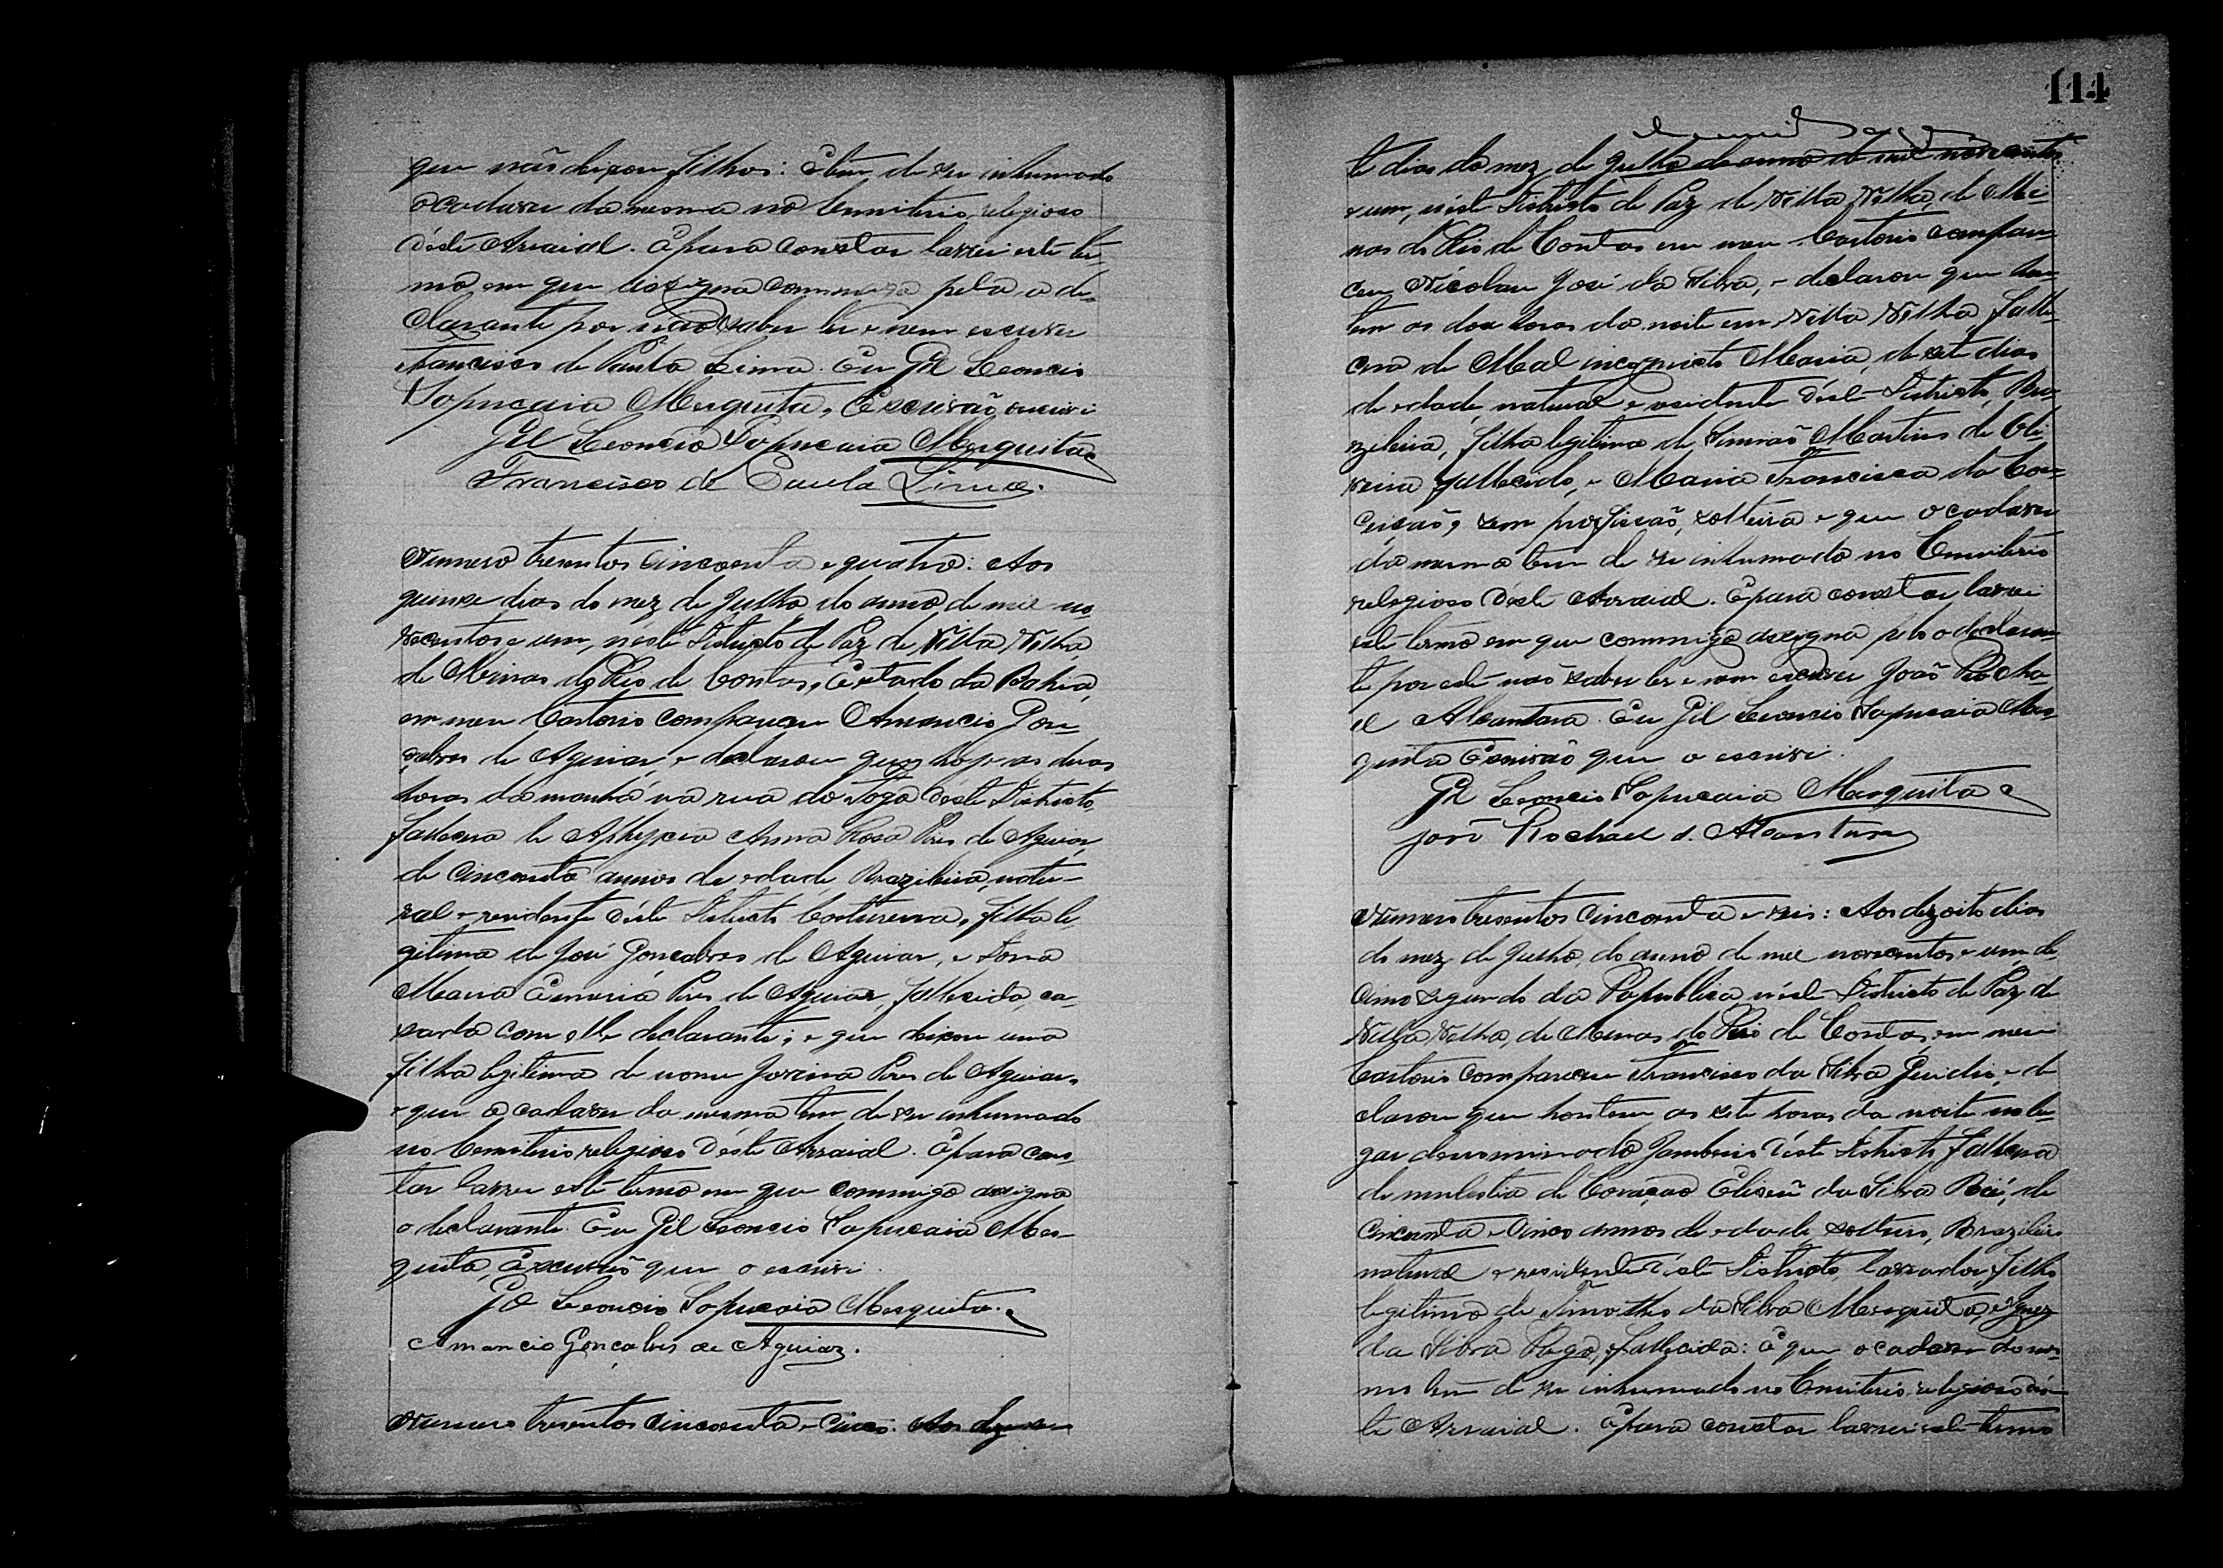 que não deixou filhos: E tem de ser inhumado
o cadaver da mesma no Cemiterio religioso
déste Arraial. E para constar lavrei este ter-
mo em que assigna commigo pela a de-
clarante por não saber ler e nem escrever
Francisco de Paula Lima. Eu Gil Leoncio
Sapucaia Mesquita, Escrivão, escrivi
Gil Leoncio Sapucaia Mesquita
Francisco de Paula Lima.
Numero tresentos cincoenta e quatro: Aos
quinse dias do mez de Julho do anno de mil no-
vecentos e um, néste Districto de Paz de Villa Velha,
de Minas do Rio de Contas, Estado da Bahia,
em meu Cartorio compareceu Amancio Gon-
çalves de Aguiar, e declarou que hoje as duas
horas da manhã na rua do Fogo déste Districto,
fallecera de Asphyxia Anna Rosa Pires de Aguiar,
de cincoenta annos de edade Brazileira, natu-
ral e residente déste Districto Costureira, filha le-
gitima de José Gonçalves de Aguiar, e Dona
Maria Pires de Aguiar, fallecida, ca-
sada com elle declarante; e que deixou uma
filha legitima de nome Jovina Pires de Aguiar,
e que o cadaver da mesma tem de ser inhumado
no Cemiterio religioso déste Arraial. E para cons-
tar lavrei este termo em que commigo assigna
o declarante. Eu Gil Leoncio Sapucaia Mes-
quita, Escrivão que o escrivi.
Gil Leoncio Sapucaia Mesquita.
Amancio Gonçalves de Aguiar.
Numero tresentos cincoenta e cinco: Aos
114
te dias do mez de Julho do anno de mil novecentos
e um, néste Districto de Paz de Villa Velha, de Mi-
nas do Rio de Contas em meu Cartorio compare-
ceu Nicolau José da Silva, e declarou que hon-
tem as horas da noite em Villa Velha, falle-
cera de Mal incognicto Maria, de sete dias
de edade, natural e residente déste Districto, Bra-
zileira, filha legitima de Simião Martins de Oli-
veira fallecido, e Maria Francisca da Con-
ceição, sem profissão, solteira e que o cadaver
da mesma tem de ser inhumado no Cemiterio
religioso déste Arraial. E para constar lavrei
este termo em que commigo assigna pelo o declaran-
te por este não saber ler e nem escrever João Racha-
el Alcantara. Eu Gil Leoncio Sapucaia Mes-
quita Escrivão que o escrivi.
Gil Leoncio Sapucaia Mesquita
João Rochael d. Alcantara
Numero tresentos cincoenta e seis: Aos dezoito dias
do mez de Julho, do anno de mil novecentos e um, de-
cimo segundo da Republica, néste Districto de Paz de
Villa Velha, de Minas do Rio de Contas, em meu
Cartorio compareceu Francisco da Silva e de-
clarou que hontem as sete horas da noite no lu-
gar denominado déste Districto fallecera
de molestia de Coração da Silva de
cincoenta e cinco annos de edade, solteiro, Brazileiro
natural e residente déste Districto, lavrador, filho
legitimo de Timotheo da Silva Mesquita, e Ignez
da Silva fallecida: E que o cadaver do mes-
mo tem de ser inhumado no Cemiterio religioso dés-
te Arraial. E para constar lavrei este termo